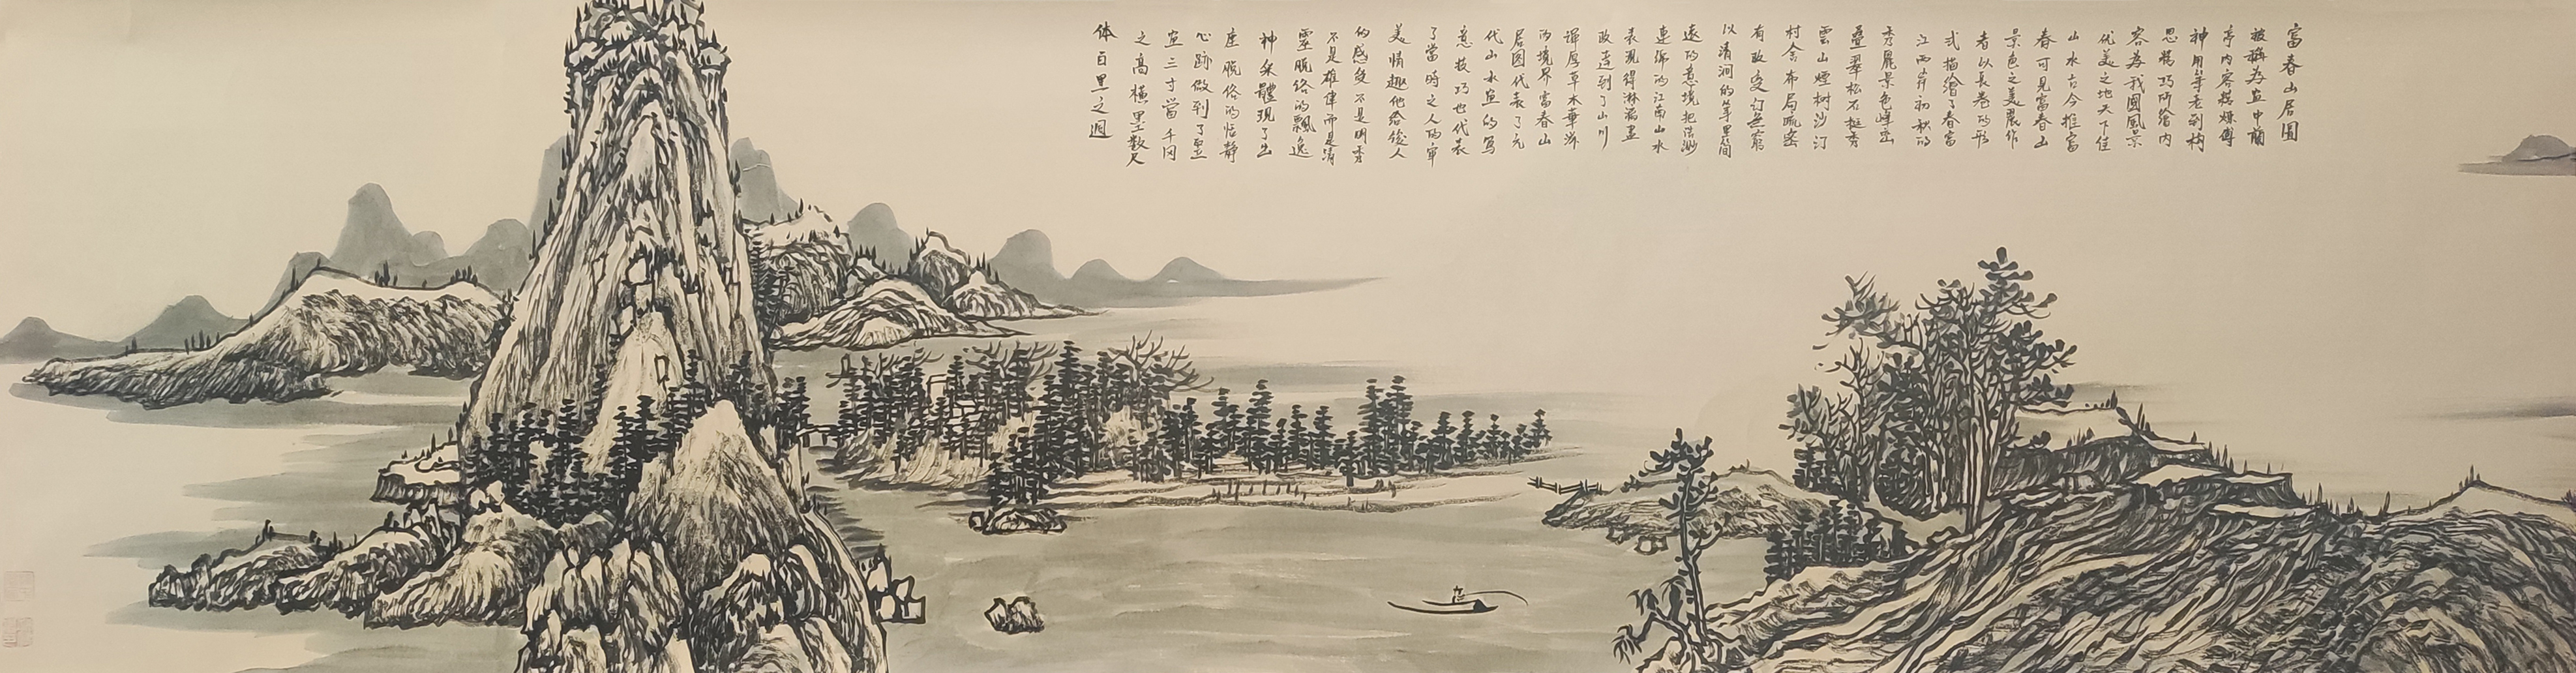 富春山居圖
被稱為畫中蘭
亭内容樸煉傅
神用笔老到构
思精巧所绘内
容為我國風景
优美之地天下佳
山水古今推富
春可見富春山
景色之美麗作
者以長卷的形
式描繪了春富
江两岸初秋的
秀麗景色峰巒
叠翠松石挺秀
雲山煙树沙汀
村舍布局疏密
有致变幻無窮
以清润的笔墨簡
遠的意境把浩渺
連绵的江南山水
表現得淋漓盡
致達到了山川
渾厚草木華滋
的境界富春山
居图代表了元
代山水画的写
意技巧也代表
了當時文人的审
美情趣他给後人
的感覺不是明秀
不是雄偉而是清
靈脱俗的飄逸
神采體現了出
座脱俗的恬静
心跡做到了竪
画三寸當千仞
之高横墨数尺
体百里之迴